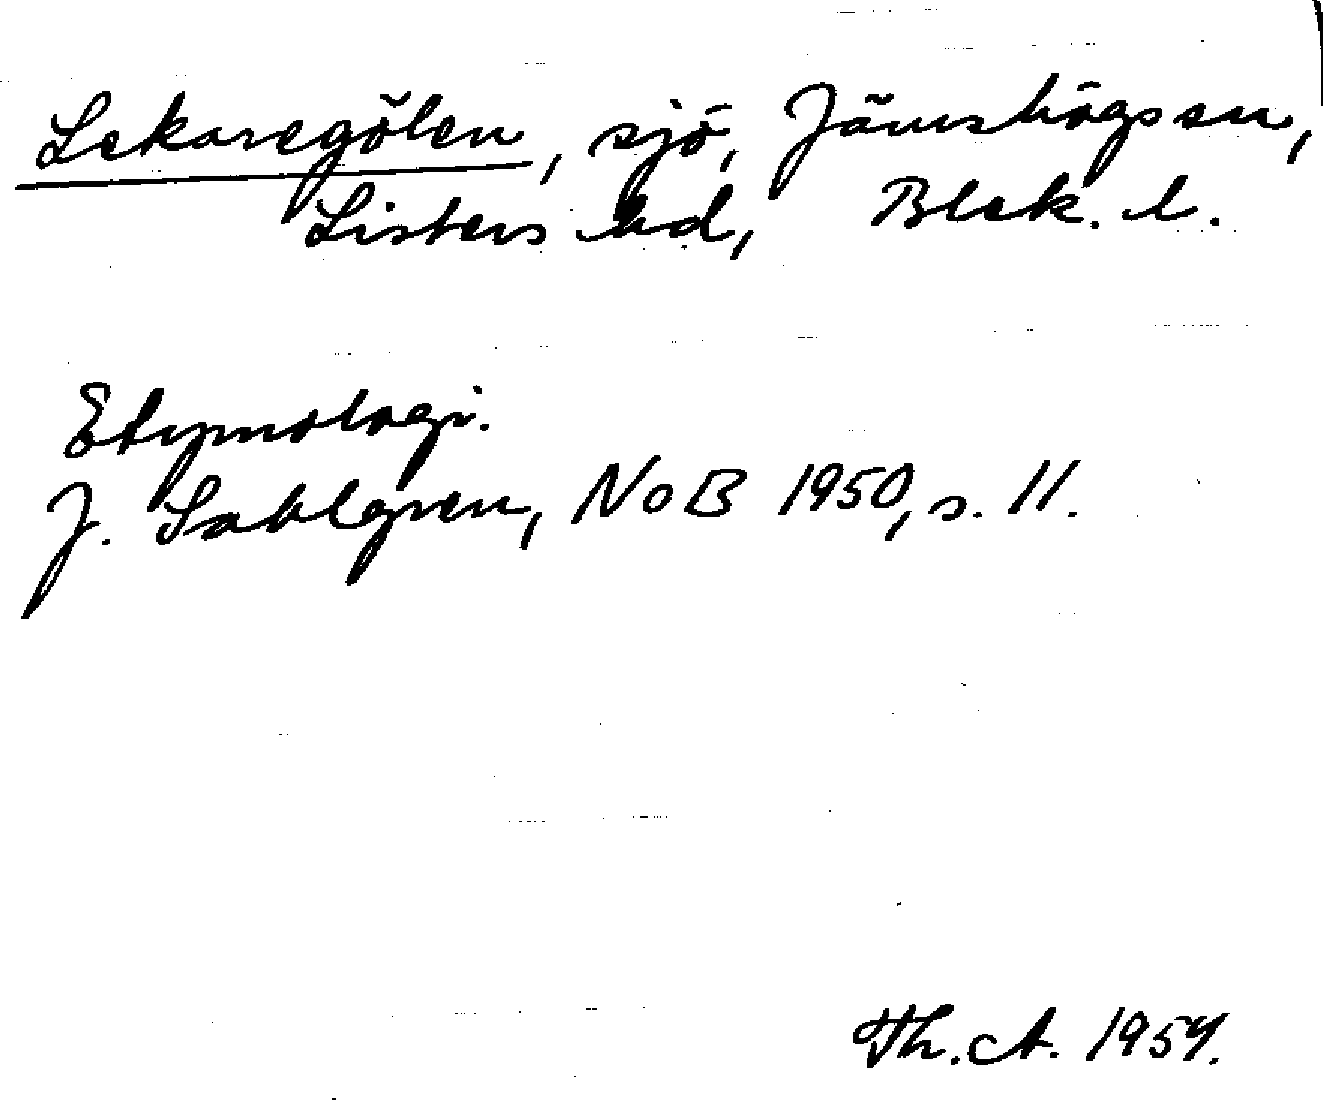 Lekaregölen, sjö, Jämshögs sn,
Listers hd, Blek. l.
Etymologi.
J. Sahlgren, NoB 1950, s. 11.
Th. A. 1954.